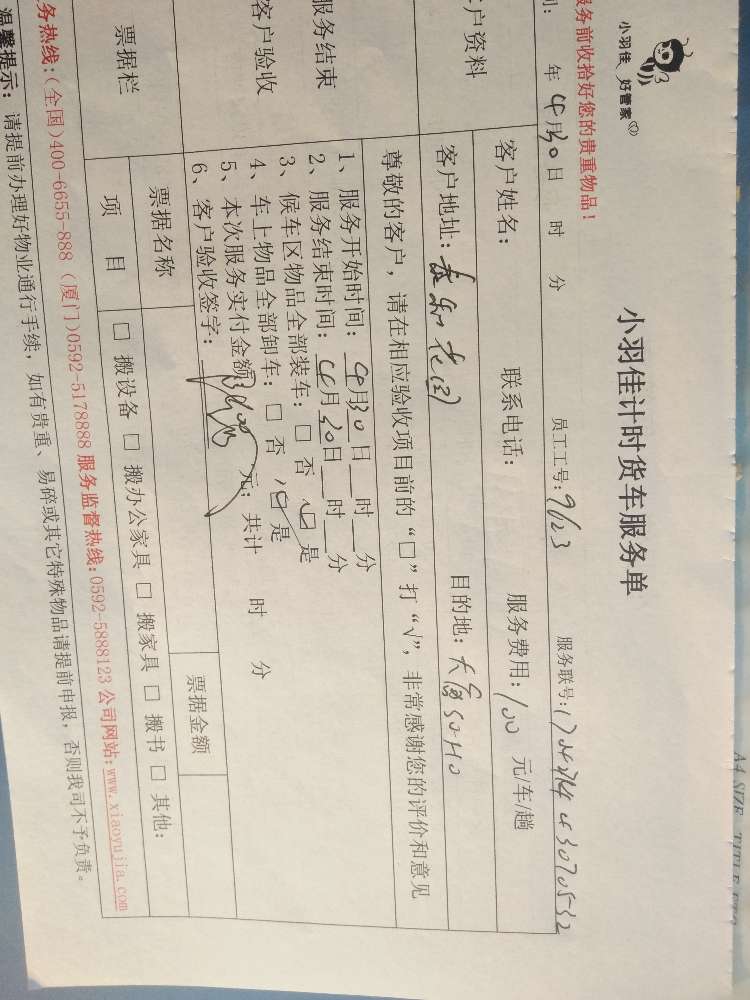 小羽佳 好管家
小羽佳计时货车服务单
服务前收拾好您的贵重物品！
年 4月30日 时 分 员工工号：9123 服务联号：
户资料
客户姓名： 联系电话： 服务费用：100 元/车/趟
客户地址： 目的地：SOHO
尊敬的客户，请在相应验收项目前的“□”打“√”，非常感谢您的评价和意见
服务结束
客户验收
1、服务开始时间：4月30日__时__分
2、服务结束时间：4月30日__时__分
3、候车区物品全部装车：□ 否 □ 是
4、车上物品全部卸车：□ 否 □ 是
5、本次服务实付金额 元；共计 时 分
6、客户验收签字：
票据栏
票据名称 票据金额
项 目 □ 搬设备 □ 搬办公家具 □ 搬家具 □ 搬书 □ 其他：
务热线：(全国)400-6655-888 (厦门)0592-5178888 服务监督热线：0592-5888123 公司网站：www.xiaoyujia.com
温馨提示： 请提前办理好物业通行手续，如有贵重、易碎或其它特殊物品请提前申报，否则我司不予负责。
A4 SIZE